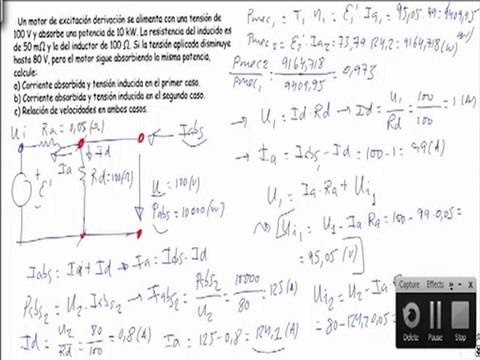 Un motor de excitación derivación se alimenta con una tensión de
100 V y absorbe una potencia de 10 kW. La resistencia del inducido es
de 50 mΩ y la del inductor de 100 Ω. Si la tensión aplicada disminuye
hasta 80 V, pero el motor sigue absorbiendo la misma potencia,
calcule:
a) Corriente absorbida y tensión inducida en el primer caso.
b) Corriente absorbida y tensión inducida en el segundo caso.
c) Relación de velocidades en ambos casos.
Pmec1 = T1 · n1 = E1' · Ia1 = 95,05 · 99 = 9409,95
Pmec2 = E2' · Ia2 = 73,79 · 124,2 = 9164,718 (W)
Pmec2 / Pmec1 = 9164,718 / 9409,95 = 0,973
→ U1 = Id · Rd → Id = U1 / Rd = 100 / 100 = 1 (A)
→ Ia = Iabs - Id = 100 - 1 = 99 (A)
U1 = Ia · Ra + Ui1
Ui1 = U1 - Ia · Ra = 100 - 99 · 0,05 =
= 95,05 (V)
Ui Ra = 0,05 (Ω) Iabs
Ia Id
+ E' Rd = 100 (Ω) U = 100 (V)
Pabs = 10000 (W)
Iabs = Ia + Id → Ia = Iabs - Id
Pabs2 = U2 · Iabs2 → Iabs2 = Pabs2 / U2 = 10000 / 80 = 125 (A)
Id = U2 / Rd = 80 / 100 = 0,8 (A) Ia = 125 - 0,8 = 124,2 (A)
Ui2 = U2 - Ia
= 80 - 124,2 · 0,05 =
Capture Effects
Delete Pause